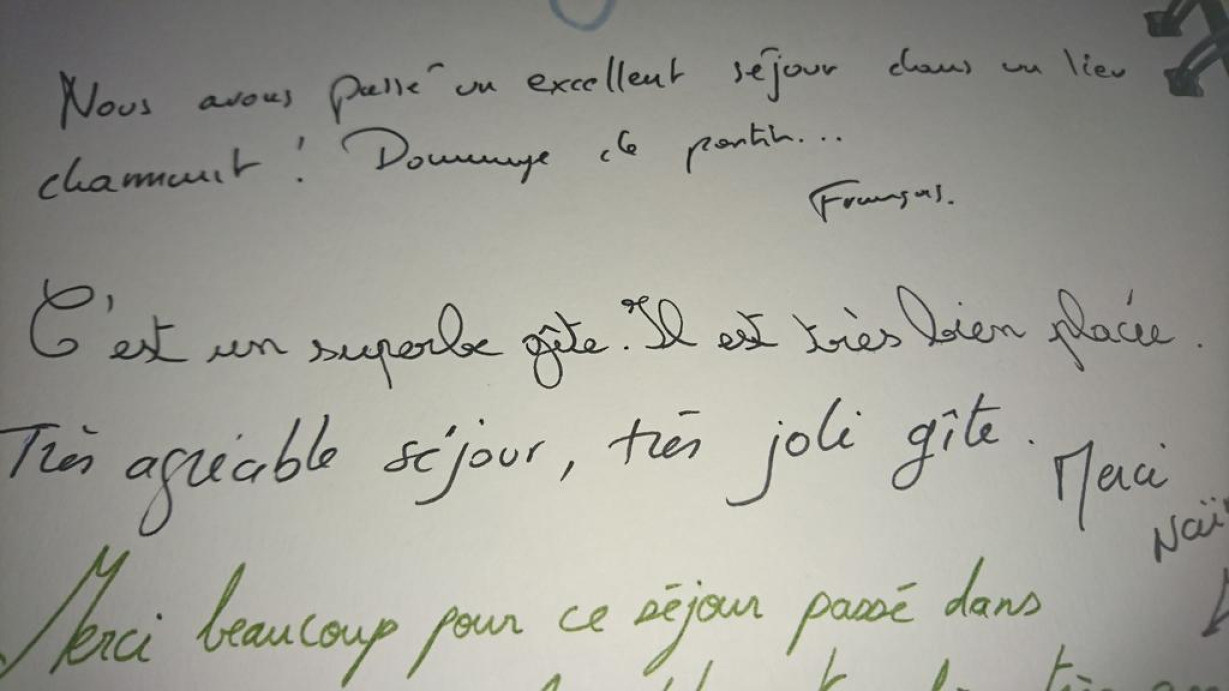 Nous avons passé un excellent séjour dans un lieu
charmant ! Dommage de partir...
François.
C'est un superbe gîte. Il est très bien placée.
Très agréable séjour, très joli gîte.
Merci
Merci beaucoup pour ce séjour passé dans